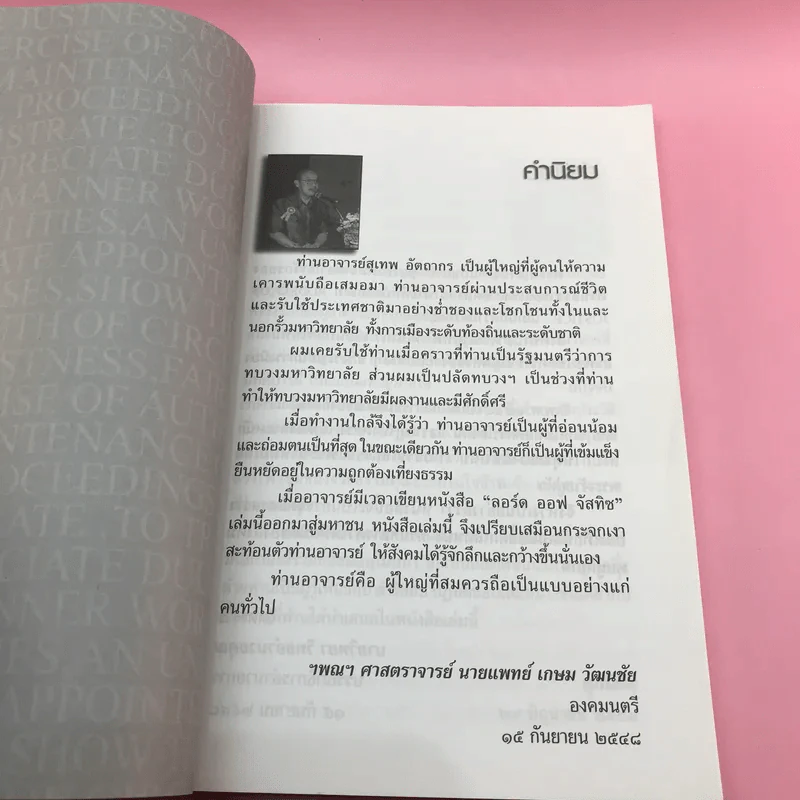 JUSTNESS FA
ERCISE OF AU
MAINTENANC
PROCEEDING
STRATE. TO
RECIATE DU
MANNER WO
LITIES. AN U
ATE APPOIN
SES SHOW
คำนิยม
ท่านอาจารย์สุเทพ อัตถากร เป็นผู้ใหญ่ที่ผู้คนให้ความ
เคารพนับถือเสมอมา ท่านอาจารย์ผ่านประสบการณ์ชีวิต
และรับใช้ประเทศชาติมาอย่างช่ำชองและโชกโชนทั้งในและ
นอกรั้วมหาวิทยาลัย ทั้งการเมืองระดับท้องถิ่นและระดับชาติ
ผมเคยรับใช้ท่านเมื่อคราวที่ท่านเป็นรัฐมนตรีว่าการ
ทบวงมหาวิทยาลัย ส่วนผมเป็นปลัดทบวงฯ เป็นช่วงที่ท่าน
ทำให้ทบวงมหาวิทยาลัยมีผลงานและมีศักดิ์ศรี
เมื่อทำงานใกล้จึงได้รู้ว่า ท่านอาจารย์เป็นผู้ที่อ่อนน้อม
และถ่อมตนเป็นที่สุด ในขณะเดียวกัน ท่านอาจารย์ก็เป็นผู้ที่เข้มแข็ง
ยืนหยัดอยู่ในความถูกต้องเที่ยงธรรม
เมื่ออาจารย์มีเวลาเขียนหนังสือ “ลอร์ด ออฟ จัสทิช”
เล่มนี้ออกมาสู่มหาชน หนังสือเล่มนี้ จึงเปรียบเสมือนกระจกเงา
สะท้อนตัวท่านอาจารย์ ให้สังคมได้รู้จักลึกและกว้างขึ้นนั่นเอง
ท่านอาจารย์คือ ผู้ใหญ่ที่สมควรถือเป็นแบบอย่างแก่
คนทั่วไป
ฯพณฯ ศาสตราจารย์ นายแพทย์ เกษม วัฒนชัย
องคมนตรี
๑๕ กันยายน ๒๕๔๘